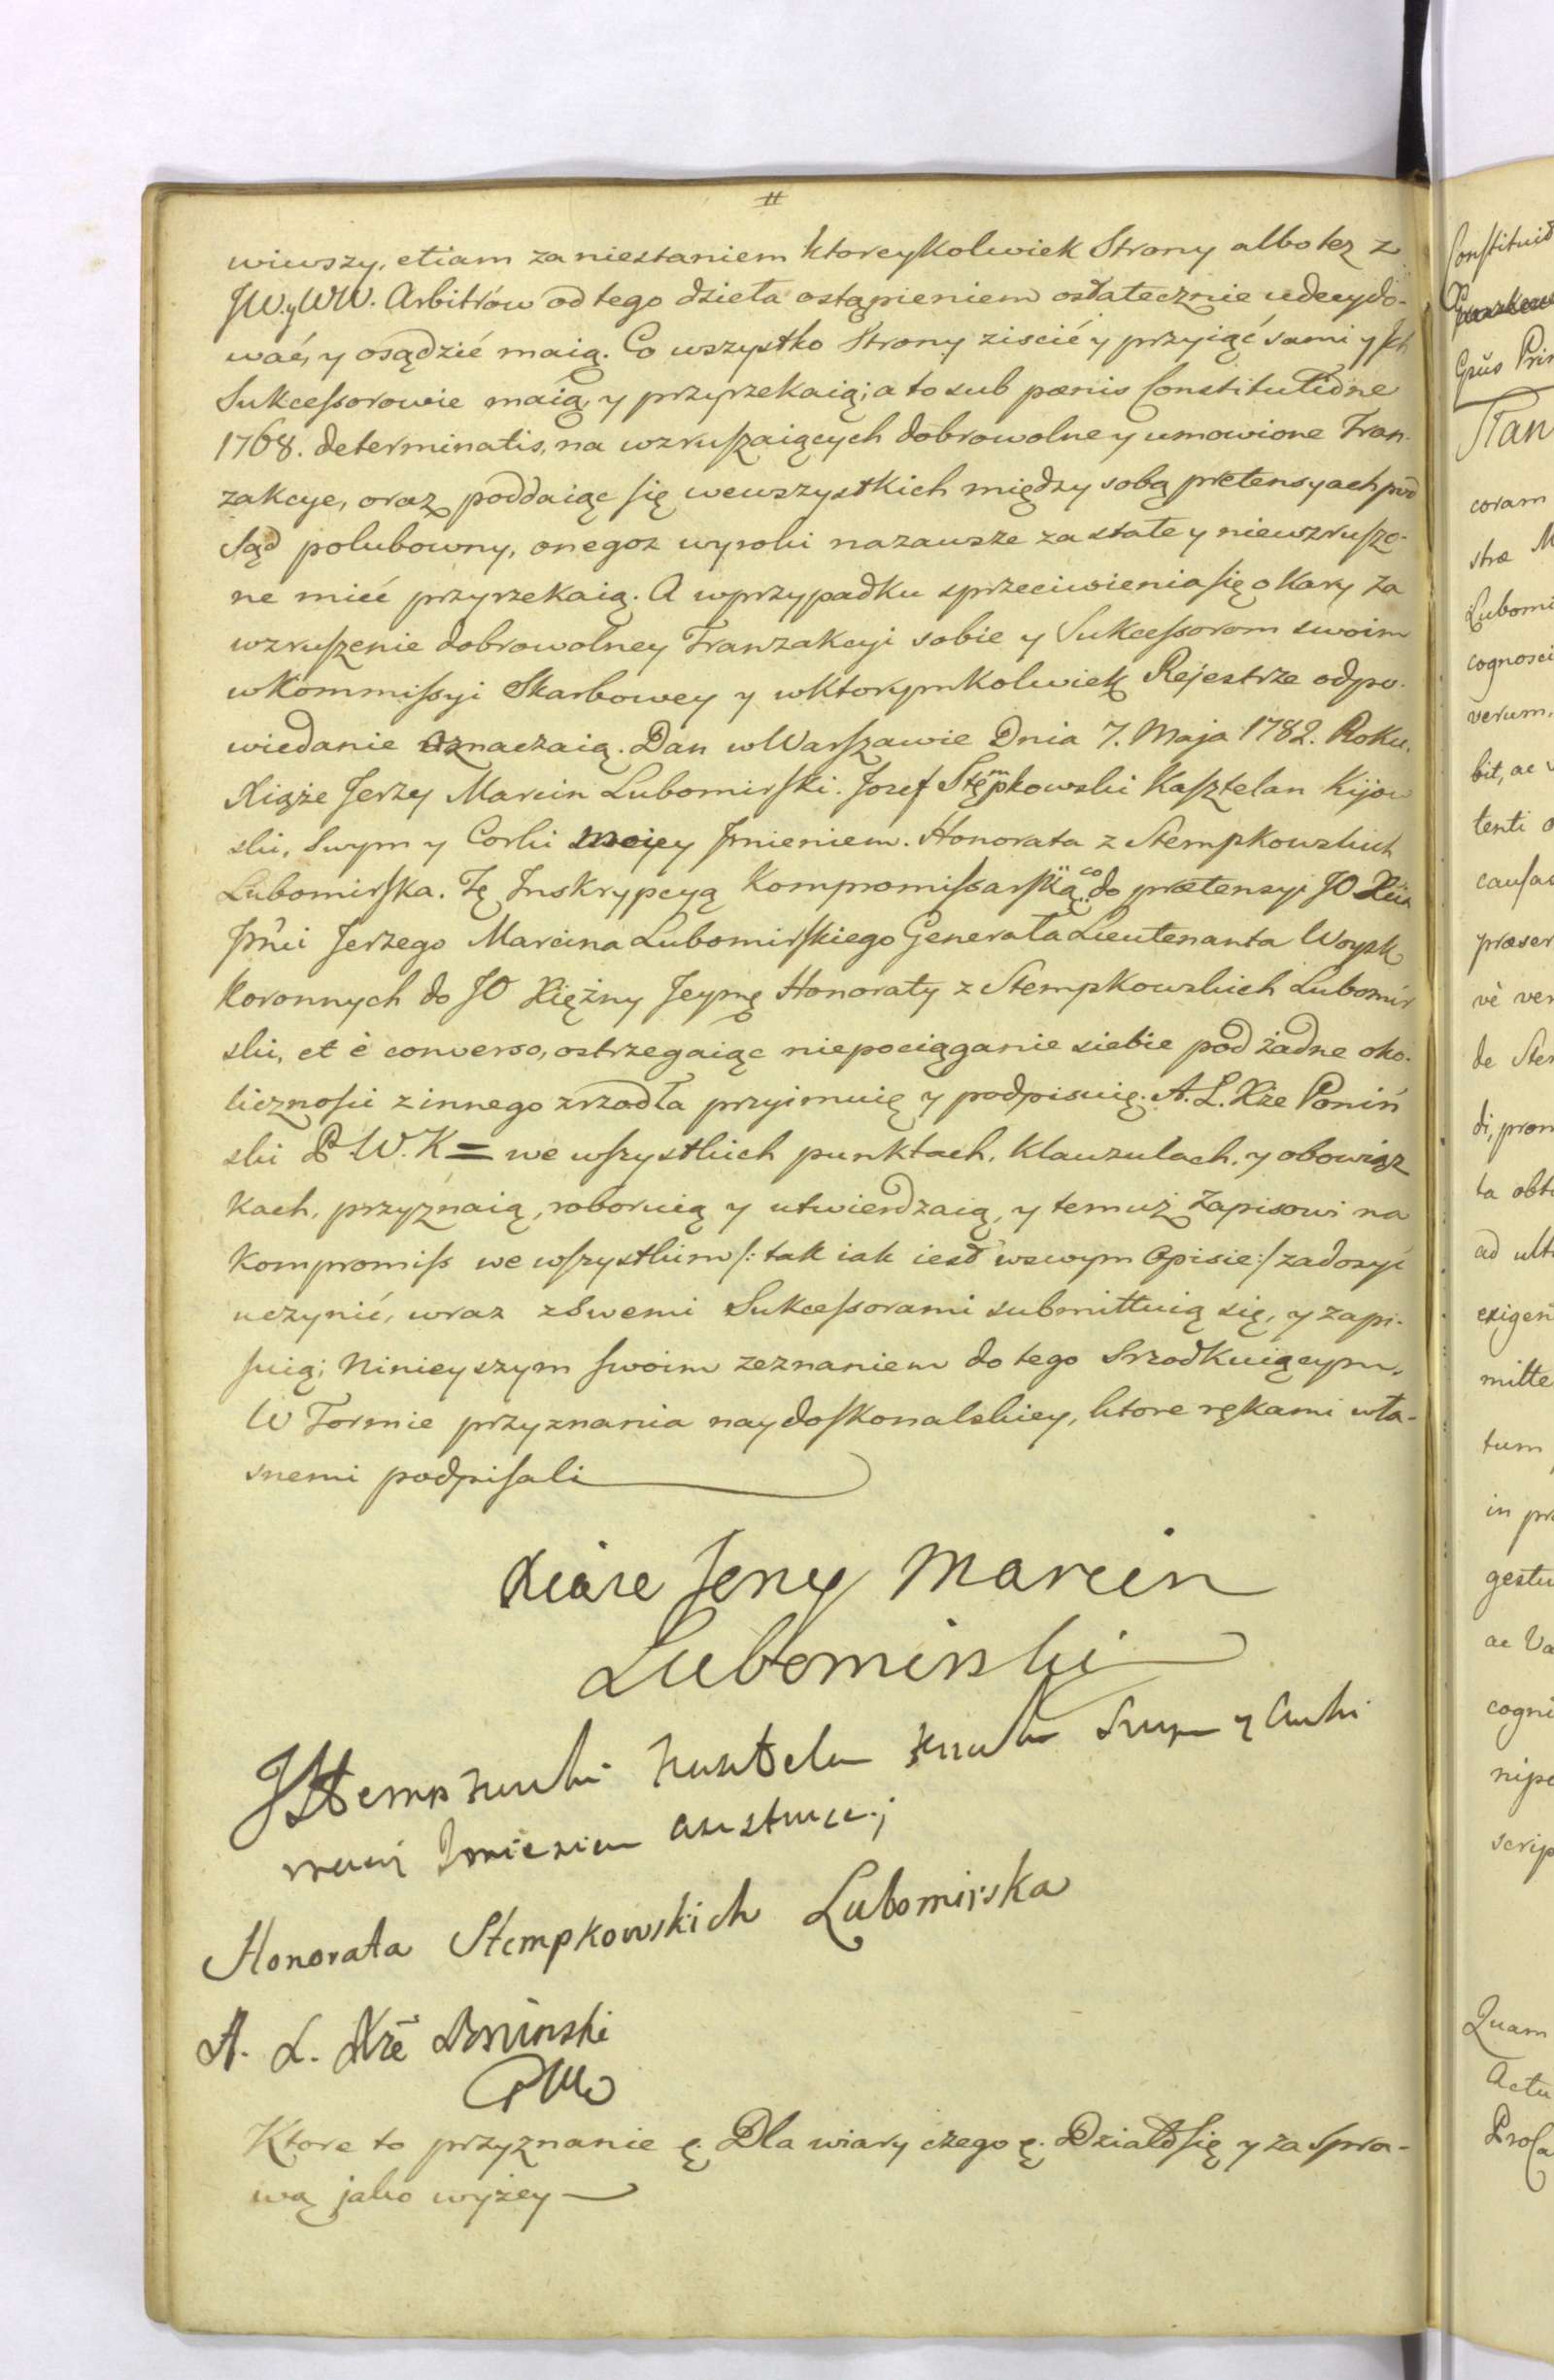 wiwszy, etiam za niestaniem ktoreykolwiek Strony albo tez z
JW. y WW. Arbitrów od tego dzieła ostąpieniem ostatecznie udecydo-
wać, y osądzić maią. Co wszystko Strony ziscić y przyiąć sami y Ich
Sukcessorowie maią, y przyrzekaią; a to sub pœnis Constitutione
1768. determinatis, na wzruszaiących dobrowolne y umowione Tran-
zakcye, oraz poddaiąc się wewszystkich między sobą pretensyach pod
Sąd polubowny, onegoz wyroki nazawsze za stałe y niewzruszo-
ne mieć przyrzekaią. A wprzypadku sprzeciwienia się o Kary za
wzruszenie dobrowolney Tranzakcyi sobie y Sukcessorom swoim
wKommissyi Skarbowey y wktorymkolwiek Rejestrze odpo-
wiedanie oznaczaią. Dan w Warszawie Dnia 7. Maja 1782. Roku.
Xiąże Jerzy Marcin Lubomirski. Jozef Stęmpkowski Kasztelan Kijow
ski, Swym y Corki moiey Jmieniem. Honorata z Stempkowskich
Lubomirska. Tę Inskrypcyą Kompromissarską co do pretensyi JO Xcia
Jmci Jerzego Marcina Lubomirskiego Generała Lieutenanta Woysk
Koronnych do JO Xiężny Jeymę Honoraty z Stempkowskich Lubomir
ski, et è converso, ostrzegaiąc niepociąganie siebie pod żadne oko-
licznosci z innego zrzodła przyimuię y podpisuię. A. L. Xże Poniń
ski P W. K = we wszystkich punktach, Klauzulach, y obowiąz
kach, przyznaią, roboruią y utwierdzaią, y temuż Zapisowi na
Kompromiss we wszystkim /: tak iak iest wswym Opisie :/ zadosyć
uczynić, wraz zSwemi Sukcessorami submittuią się, y zapi-
suią; Ninieyszym swoim zeznaniem do tego Srzodkuiącym,
W Formie przyznania naydoskonalskiey, ktore rękami wła-
snemi podpisali
Xiąze Jerzy Marcin
Lubomirski
JStempkowski Kasztelan Swym y Corki
Imieniem
Honorata Stempkowskich Lubomirska
A. L. Xże Poninski
Ktore to przyznanie ę. Dla wiary czego ę. Działo się y za Spra-
wą jako wyżey
Constituid
Gnus Prin
Stan
coram
stræ M
Lubomi
cognosci
verum,
bit, ac v
tenti o
causas
præser
vè ver
de Ster
di, prom
ta obt
ad ult
exigen
mitte
tum
in pr
gestu
ac Va
cogni
nipo
scrip
Quam
Actu